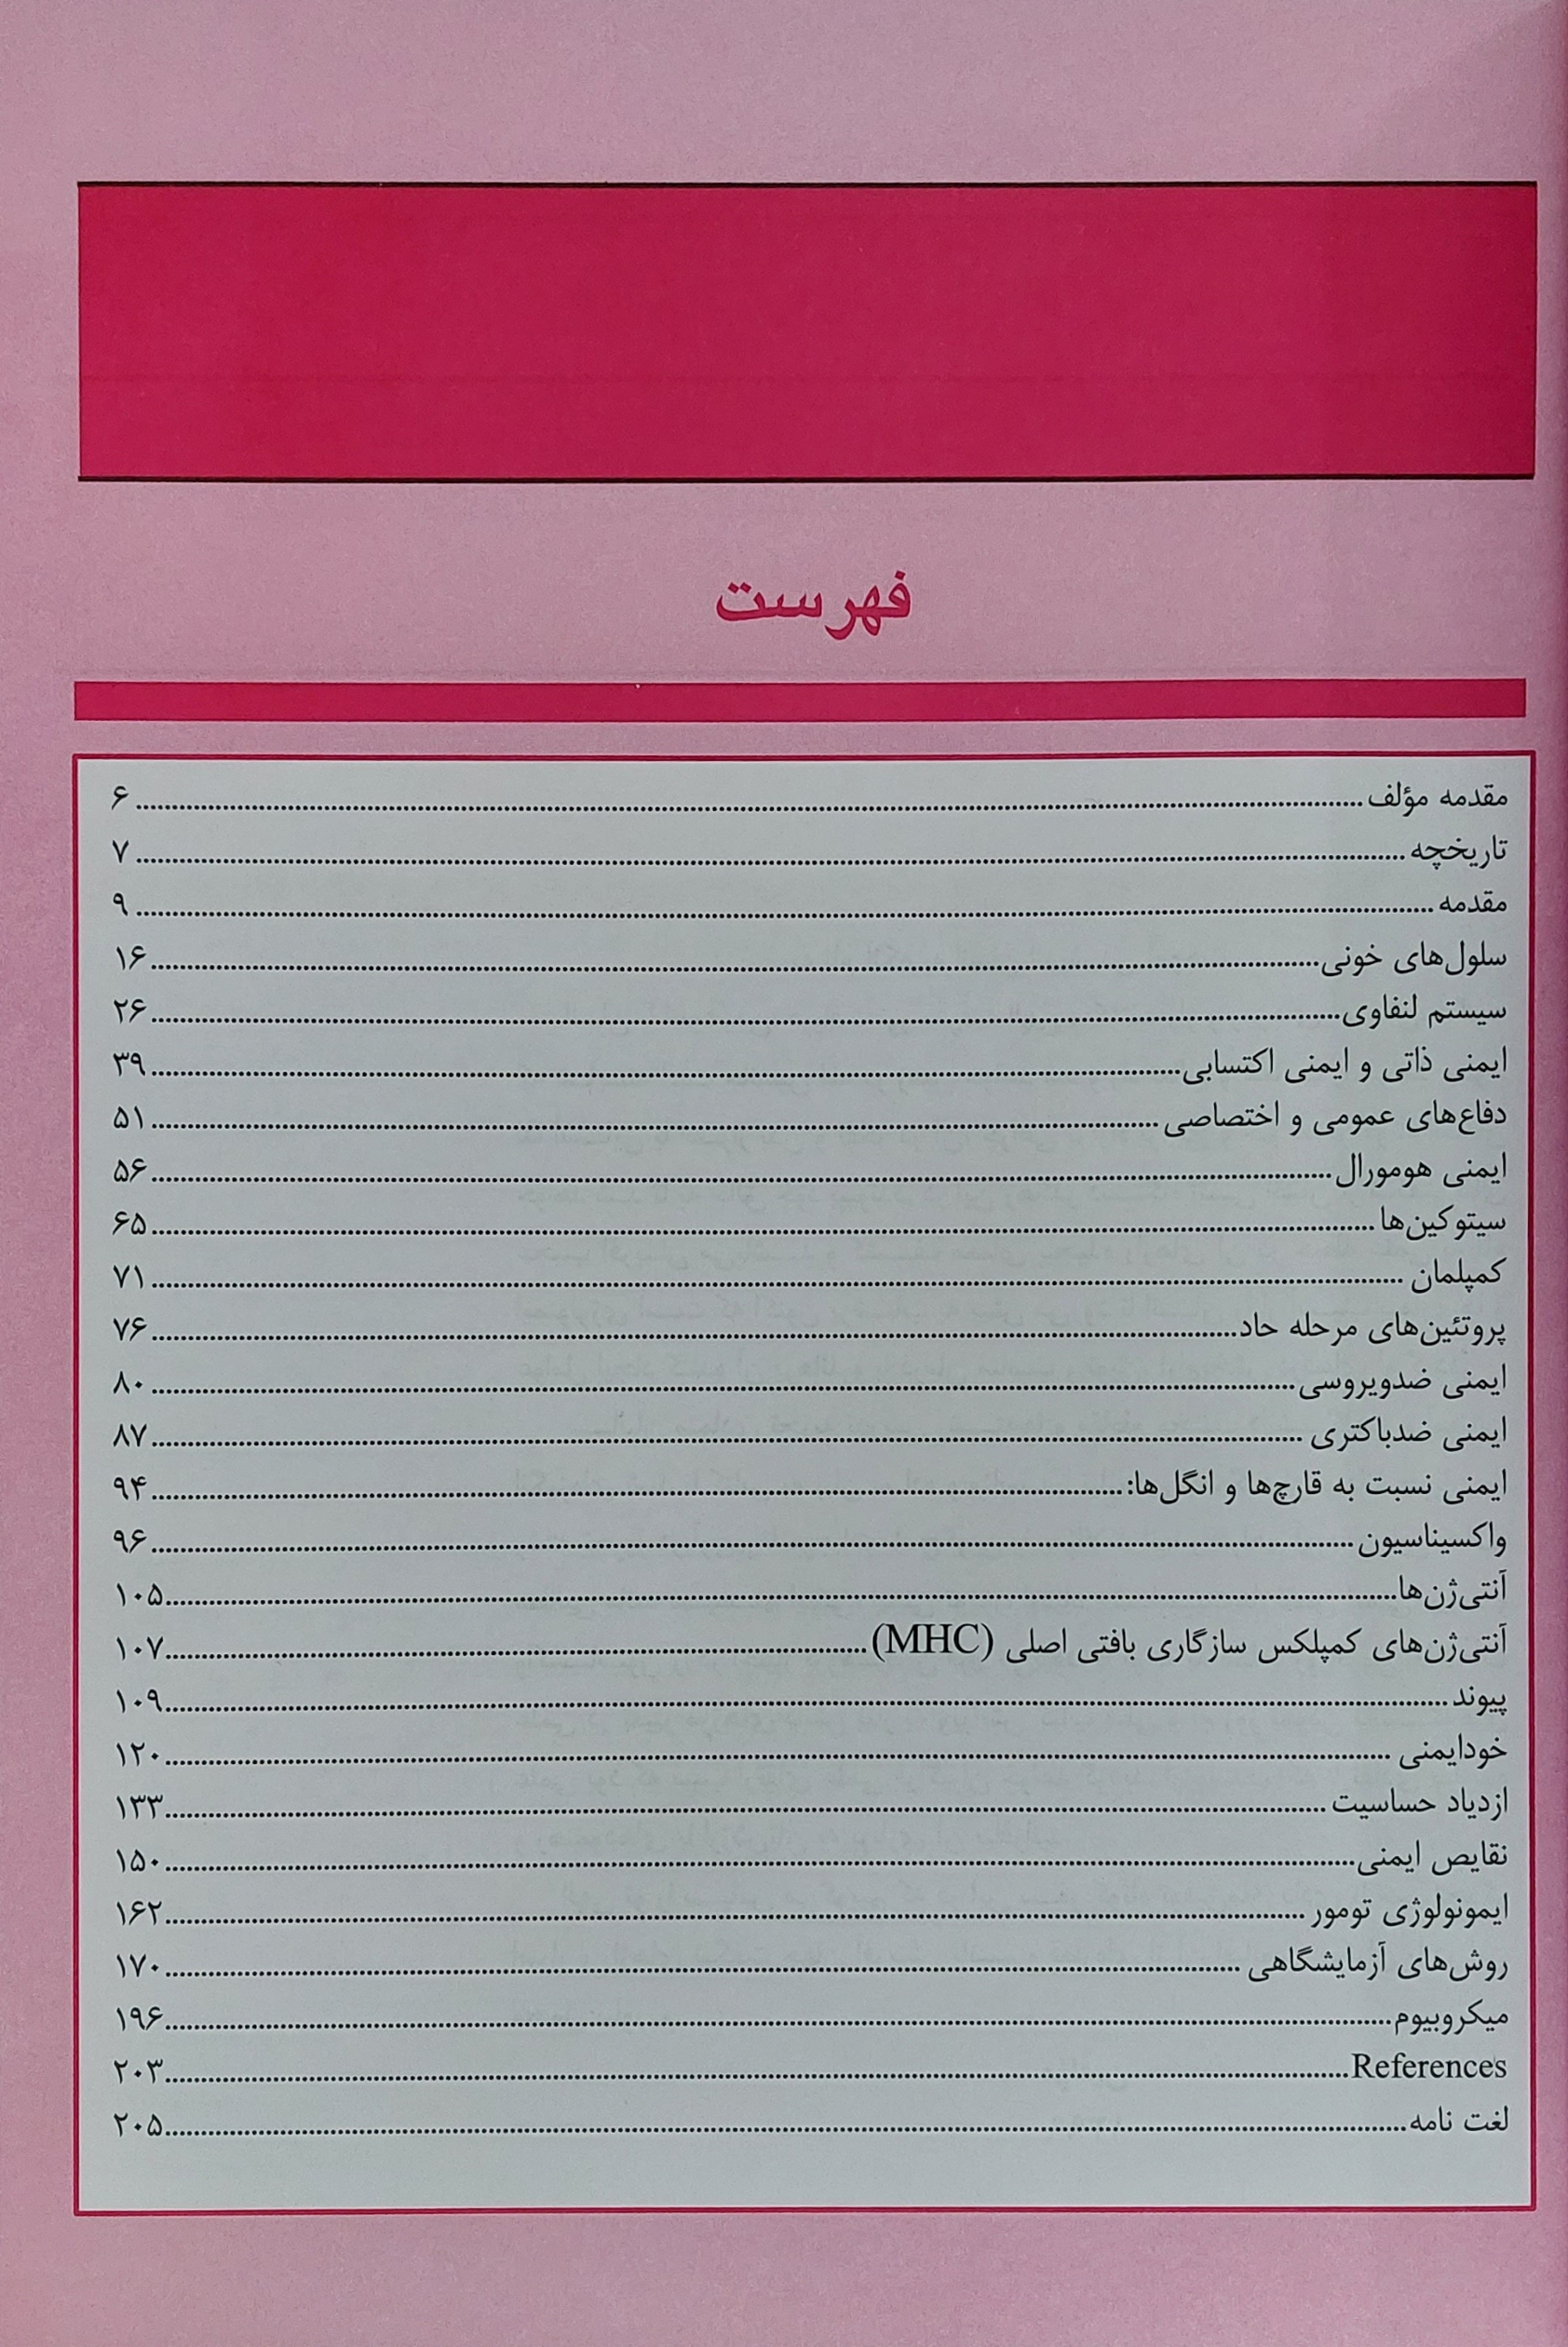 فهرست
مقدمه مؤلف ۶
تاریخچه ۷
مقدمه ۹
سلول‌های خونی ۱۶
سیستم لنفاوی ۲۶
ایمنی ذاتی و ایمنی اکتسابی ۳۹
دفاع‌های عمومی و اختصاصی ۵۱
ایمنی هومورال ۵۶
سیتوکین‌ها ۶۵
کمپلمان ۷۱
پروتئین‌های مرحله حاد ۷۶
ایمنی ضدویروسی ۸۰
ایمنی ضدباکتری ۸۷
ایمنی نسبت به قارچ‌ها و انگل‌ها: ۹۴
واکسیناسیون ۹۶
آنتی‌ژن‌ها ۱۰۵
آنتی‌ژن‌های کمپلکس سازگاری بافتی اصلی (MHC) ۱۰۷
پیوند ۱۰۹
خودایمنی ۱۲۰
ازدیاد حساسیت ۱۳۳
نقایص ایمنی ۱۵۰
ایمونولوژی تومور ۱۶۲
روش‌های آزمایشگاهی ۱۷۰
میکروبیوم ۱۹۶
References ۲۰۳
لغت نامه ۲۰۵